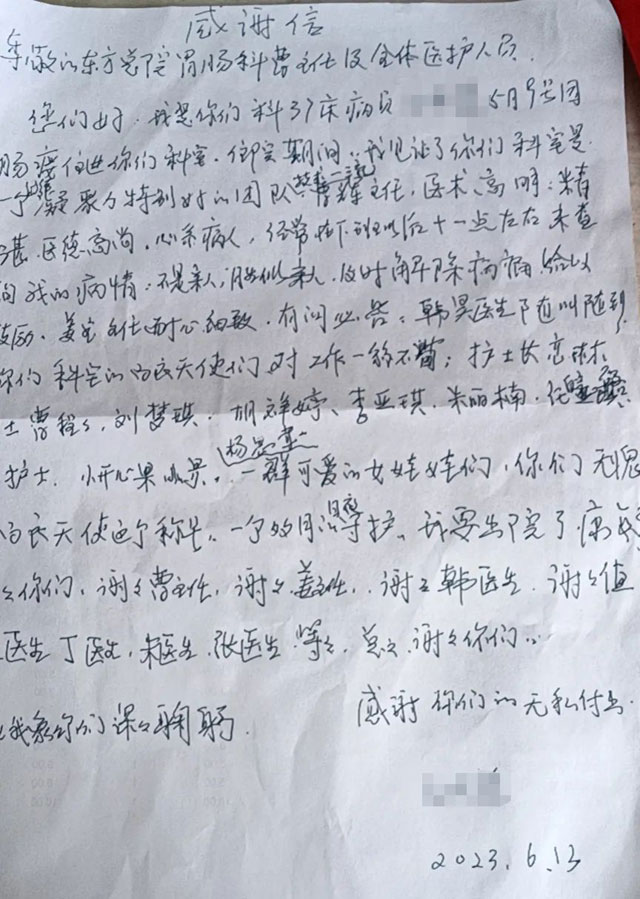 感谢信
尊敬的东方总院胃肠科曹主任及全体医护人员.
您们好.我是你们科37床病员 5月9号因
肠癌住进你们科室.住院期间.我见证了你们科室是
一个凝聚力特别好的团队 曹 主任,医术高明:精
湛.医德高尚.心系病人,经常 下班以后十一点左右来查
问我的病情.不是亲人,胜似亲人.及时解除病痛.给以
鼓励.姜主任耐心细致.有问必答.韩昊医生随叫随到
你们科室的白衣天使们对工作一 不苟;护士长
士曹程々,刘梦琪.胡 婷、李亚琪.朱丽楠.任
护士.小开心果 . 一群可爱的女娃娃们,你们无愧
白衣天使这个称号.一个多月 守护、我要出院了
々你们,谢々曹主任,谢々姜主任.谢々韩医生.谢々值
医生丁医生,宋医生.张医生.等々.总之.谢々你们..
我系你们深々鞠躬. 感谢你们的无私付出.
2023.6.13